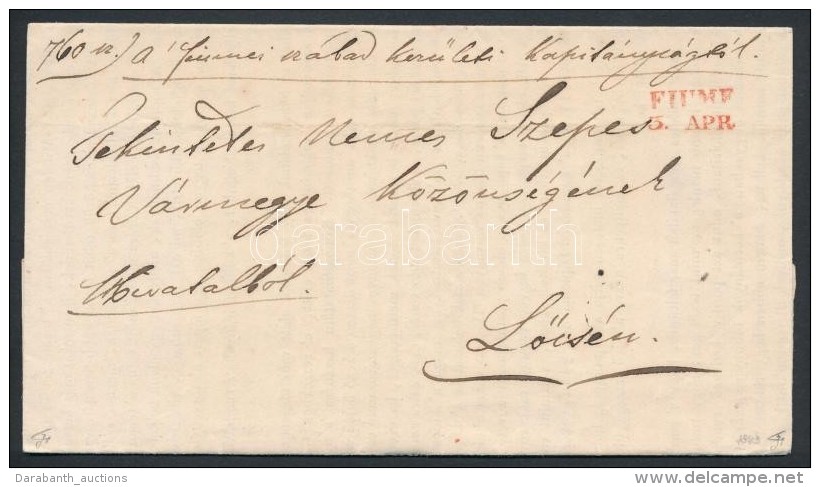 760 sz.) a' fiumei szabad kerületi kapitányságtól.
FIUME
3. APR.
Tekintetes Nemes Szepes
Vármegye Közönségének
Hivatalból.
Lőcsén.
darabanth
Darabanth_auctions
www.delcampe.net